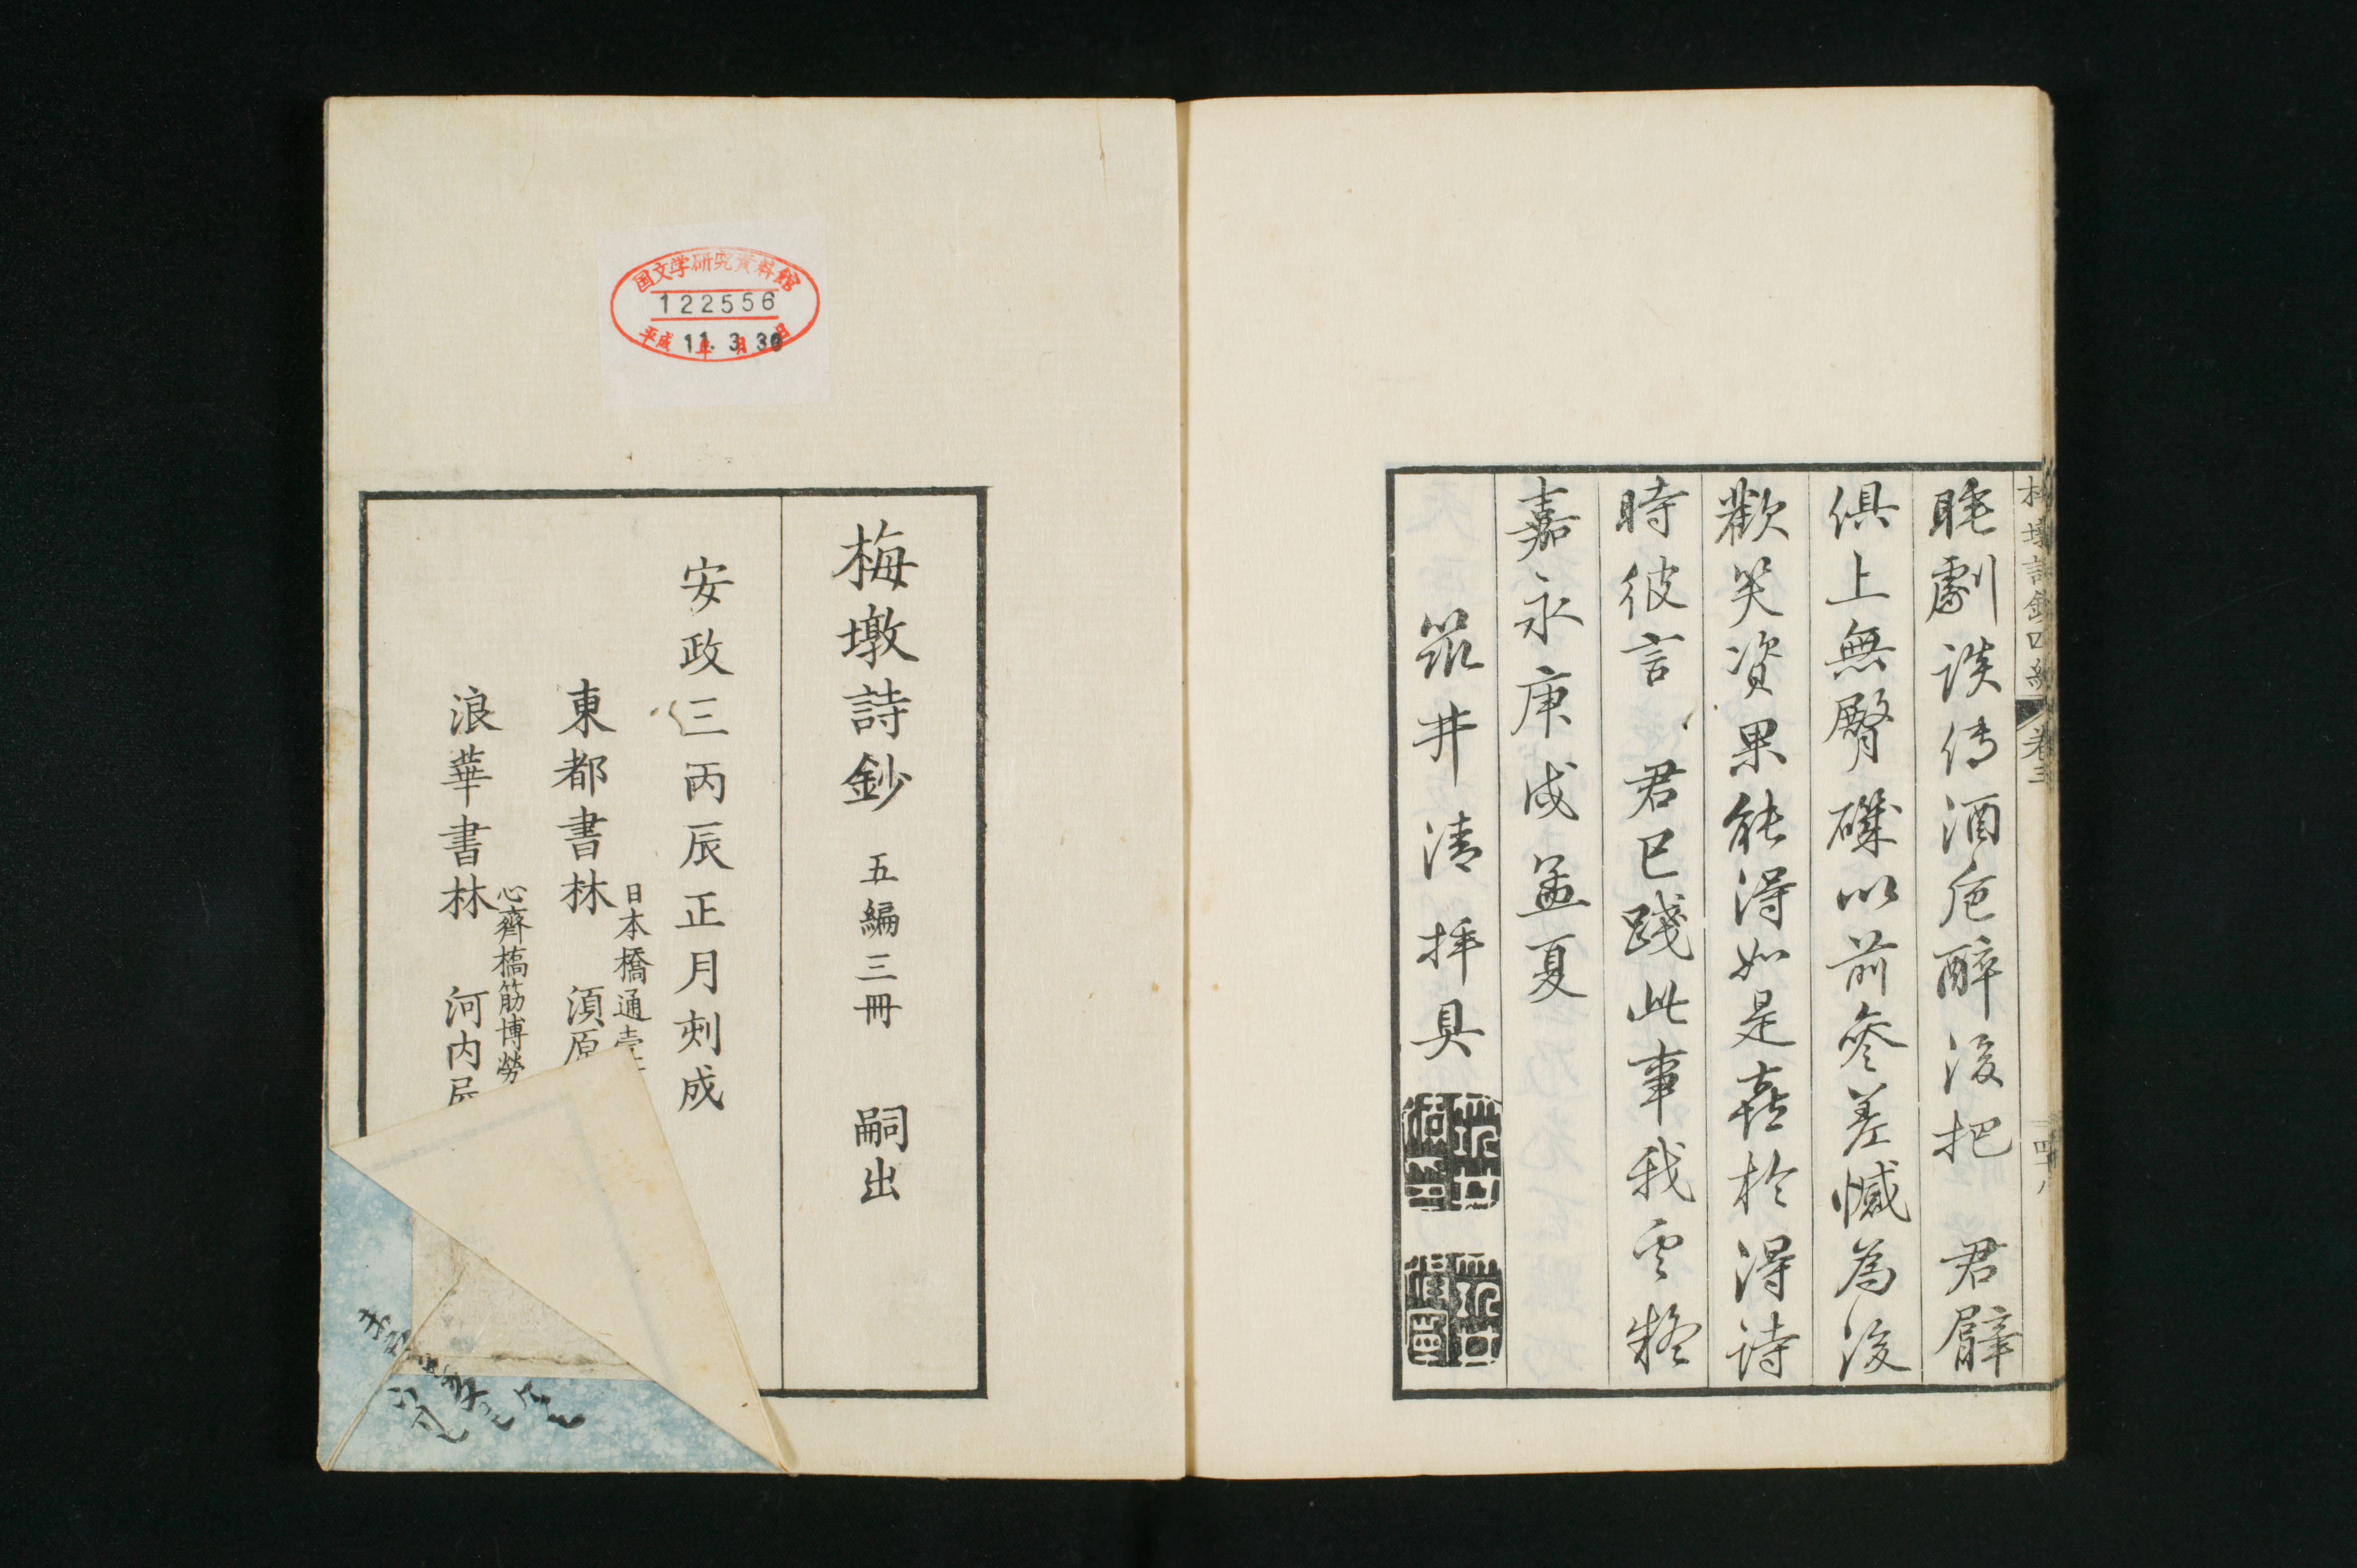 梅墩詩鈔四編 卷三 四十八
眊劇談傳酒巵醉後把 君辟
俱上無臀磯以前參差憾為後
歡笑資果能得如是喜於得詩
時彼言 君已踐此事我寧
嘉永庚戌孟夏
井清拝具
梅墩詩鈔 五編三冊 嗣出
安政三丙辰正月刻成
日本橋通壹
東都書林 須原
心齊橋筋博勞
浪華書林 河内屋
国文学研究資料館
122556
平成11年3月30日